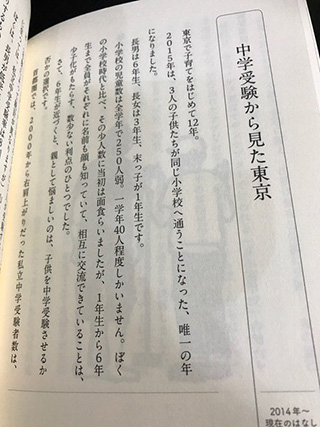 中学受験から見た東京
東京で子育てをはじめて12年。
2015年は、3人の子供たちが同じ小学校へ通うことになった、唯一の年
になりました。
長男は6年生、長女は3年生、末っ子が1年生です。
小学校の児童数は全学年で250人弱。一学年40人程度しかいません。ぼく
の小学校時代と比べ、その少人数に当初は面食らいましたが、1年生から6年
生まで全員がそれぞれに名前も顔も知っていて、相互に交流できていることは、
少子化がもたらす、数少ない利点のひとつでした。
さて、6年生が近づくと、親として悩ましいのは、子供を中学受験させるか
否かの選択です。
首都圏では、2000年から右肩上がりだった私立中学受験者数は、
2014年〜
現在のはなし